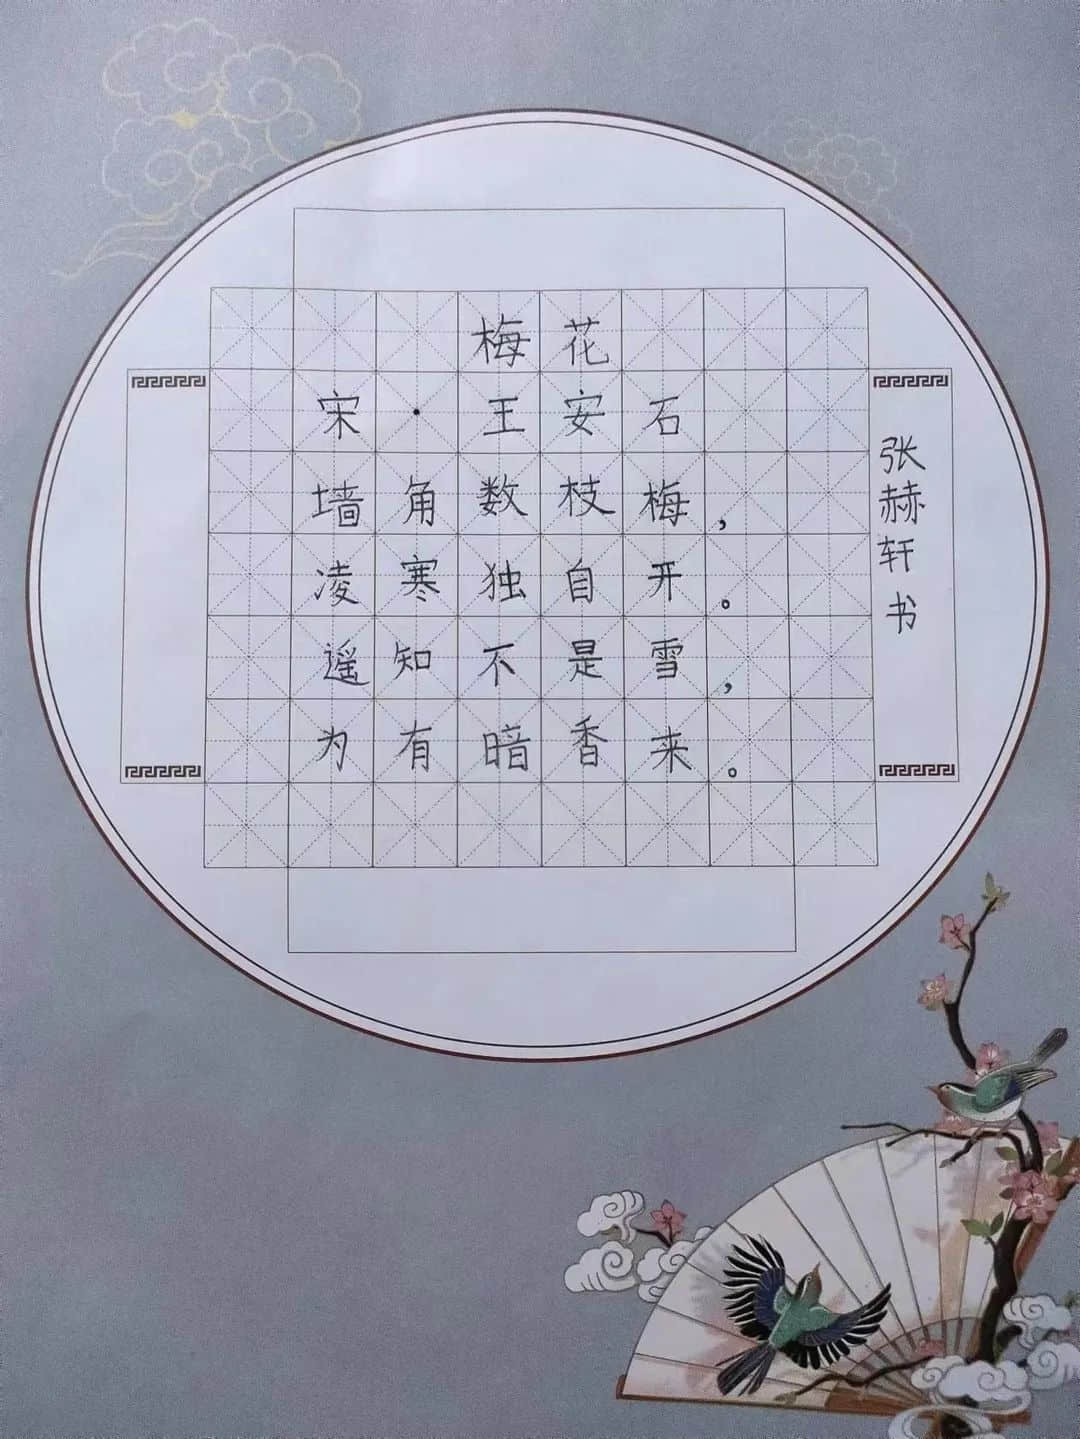 梅花
宋·王安石
墙角数枝梅，
凌寒独自开。
遥知不是雪，
为有暗香来。
张赫轩书